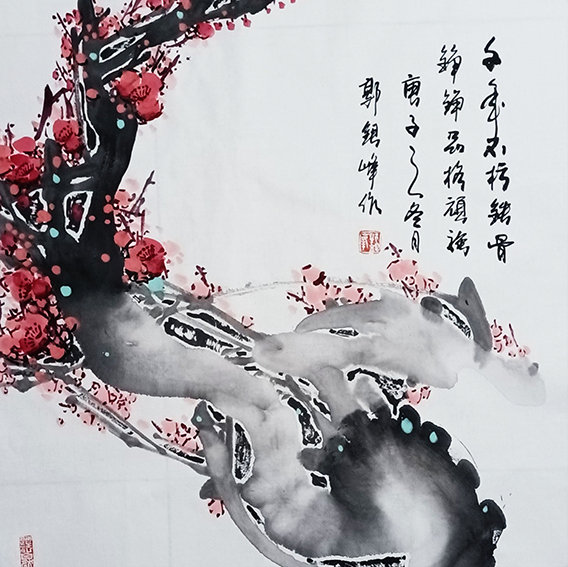 千年不朽铁骨
铮铮品格顽强
庚子之冬月
郭银峰作